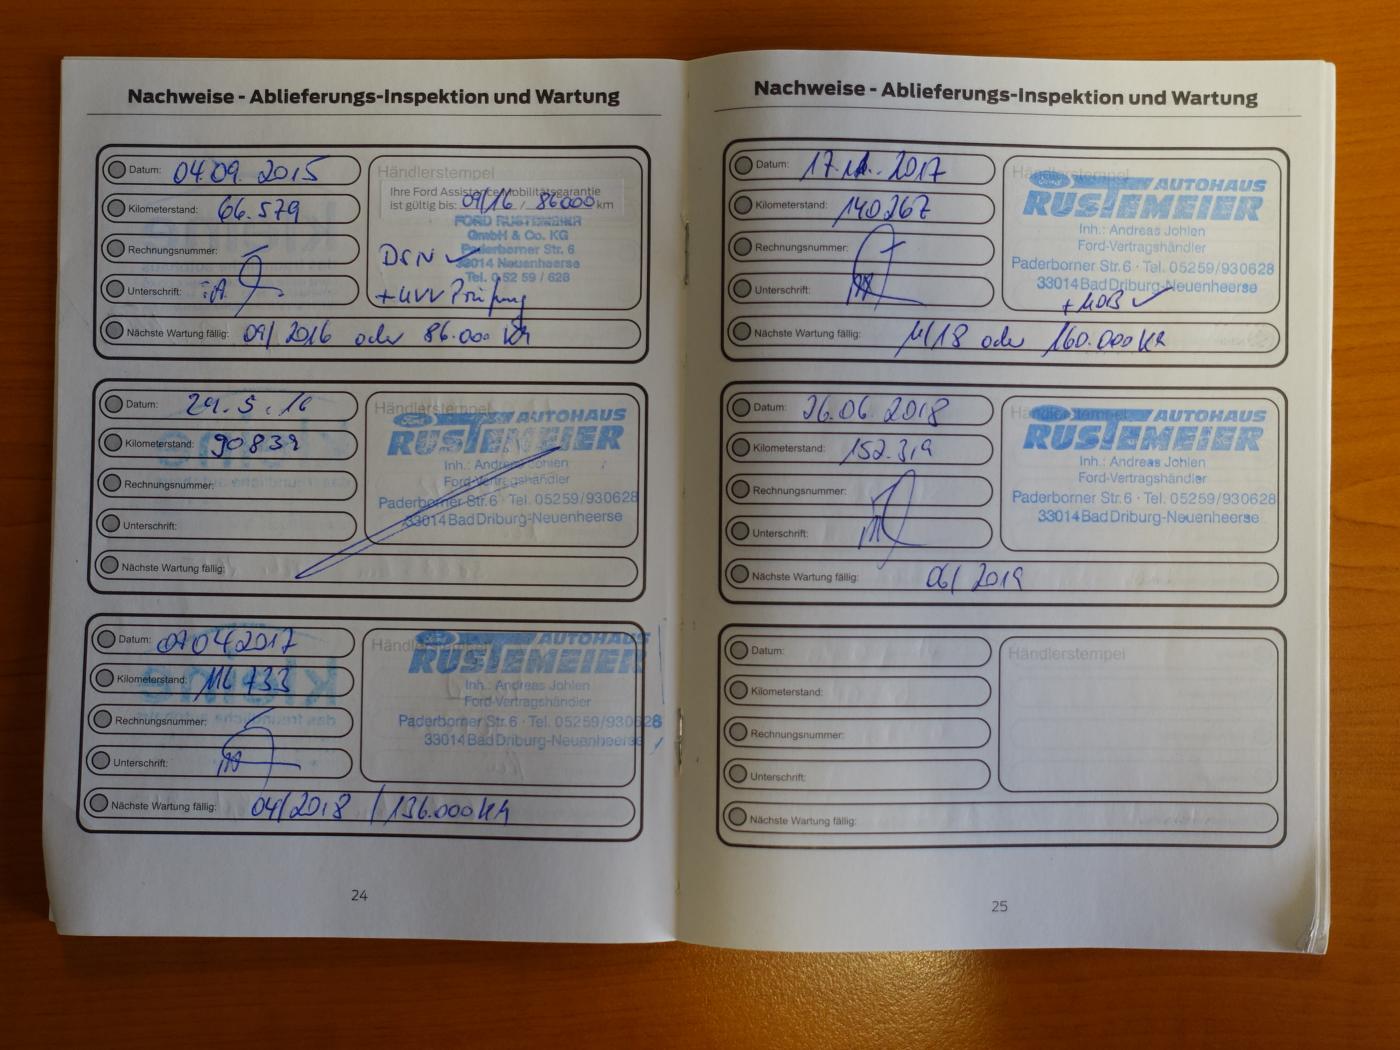 Nachweise - Ablieferungs-Inspektion und Wartung
Datum: 04.09. 2015
Kilometerstand: 66.579
Rechnungsnummer:
Unterschrift: i.A.
Händlerstempel
Ihre Ford Assistance Mobilitätsgarantie
ist gültig bis: 09/16 / 86000 km
FORD RUSTEMEIER
GmbH & Co. KG
Paderborner Str. 6
33014 Neuenheerse
Tel. 0 52 59 / 628
DSN ✓
+ UVV Prüfung
Nächste Wartung fällig: 09/ 2016 oder 86.000 Km
Datum: 29.5.16
Kilometerstand: 90839
Rechnungsnummer:
Unterschrift:
Händlerstempel
Ford AUTOHAUS
RUSTEMEIER
Inh.: Andreas Johlen
Ford-Vertragshändler
Paderborner Str. 6 · Tel. 05259/930628
33014 Bad Driburg-Neuenheerse
Nächste Wartung fällig:
Datum: 07.04.2017
Kilometerstand: 116733
Rechnungsnummer:
Unterschrift:
Händlerstempel
Ford AUTOHAUS
RUSTEMEIER
Inh.: Andreas Johlen
Ford-Vertragshändler
Paderborner Str. 6 · Tel. 05259/930628
33014 Bad Driburg-Neuenheerse
Nächste Wartung fällig: 04/2018 / 136.000 Km
24
Nachweise - Ablieferungs-Inspektion und Wartung
Datum: 17.11.2017
Kilometerstand: 140267
Rechnungsnummer:
Unterschrift:
Händlerstempel
Ford AUTOHAUS
RUSTEMEIER
Inh.: Andreas Johlen
Ford-Vertragshändler
Paderborner Str. 6 · Tel. 05259/930628
33014 Bad Driburg-Neuenheerse
✓
Nächste Wartung fällig: 11/18 oder 160.000 Km
Datum: 26.06.2018
Kilometerstand: 152.319
Rechnungsnummer:
Unterschrift:
Händlerstempel
Ford AUTOHAUS
RUSTEMEIER
Inh.: Andreas Johlen
Ford-Vertragshändler
Paderborner Str. 6 · Tel. 05259/930628
33014 Bad Driburg-Neuenheerse
Nächste Wartung fällig: 06/ 2019
Datum:
Kilometerstand:
Rechnungsnummer:
Unterschrift:
Händlerstempel
Nächste Wartung fällig:
25